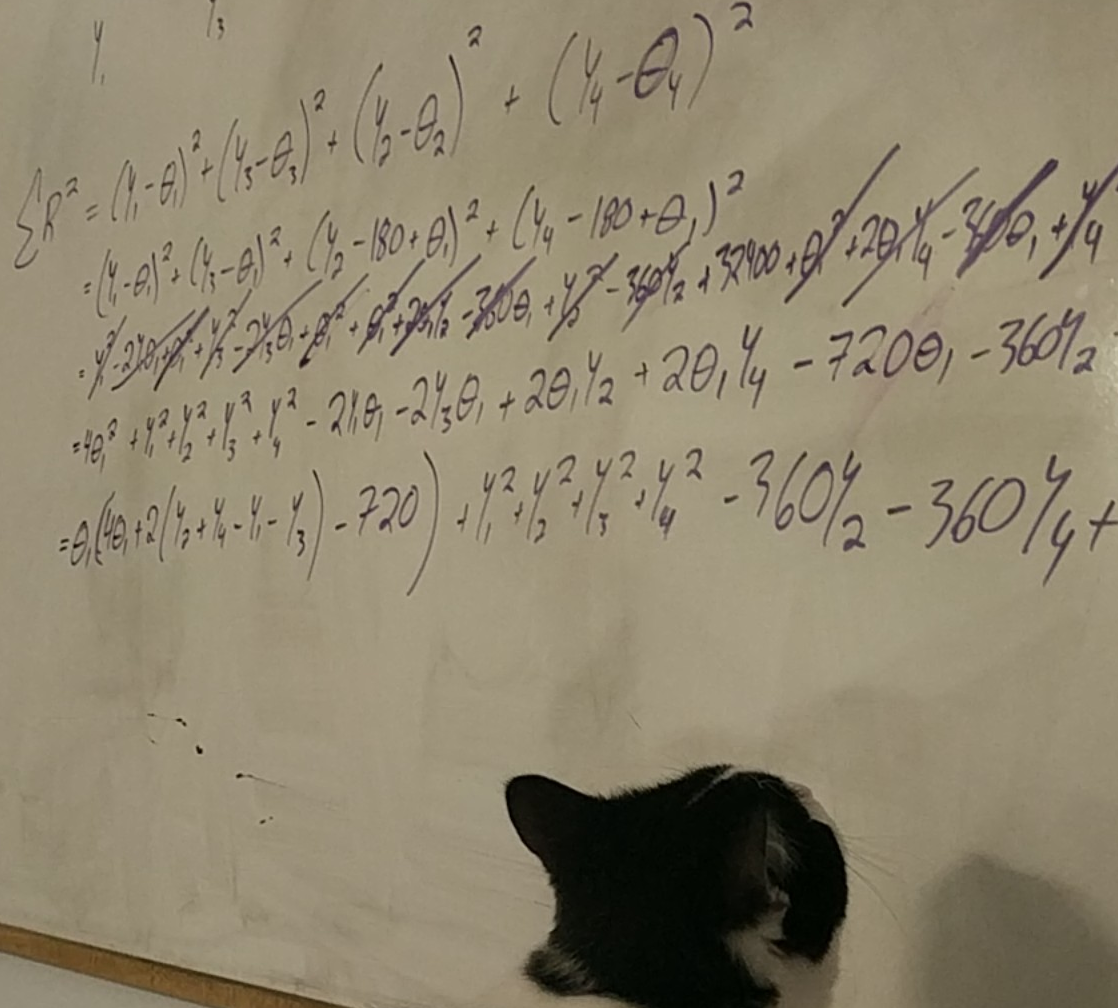 Y₁ Y₃
ΣR² = (Y₁-θ₁)² + (Y₃-θ₃)² + (Y₂-θ₂)² + (Y₄-θ₄)²
= (Y₁-θ₁)² + (Y₃-θ₁)² + (Y₂-180+θ₁)² + (Y₄-180+θ₁)²
= Y₁² - 2Y₁θ₁ + θ₁² + Y₃² - 2Y₃θ₁ + θ₁² + θ₁² + 2θ₁Y₂ - 360θ₁ + Y₂² - 360Y₂ + 32400 + θ₁² + 2θ₁Y₄ - 360θ₁ + Y₄
= 4θ₁² + Y₁² + Y₂² + Y₃² + Y₄² - 2Y₁θ₁ - 2Y₃θ₁ + 2θ₁Y₂ + 2θ₁Y₄ - 720θ₁ - 360Y₂
= θ₁(4θ₁ + 2(Y₂+Y₄-Y₁-Y₃) - 720) + Y₁² + Y₂² + Y₃² + Y₄² - 360Y₂ - 360Y₄ +